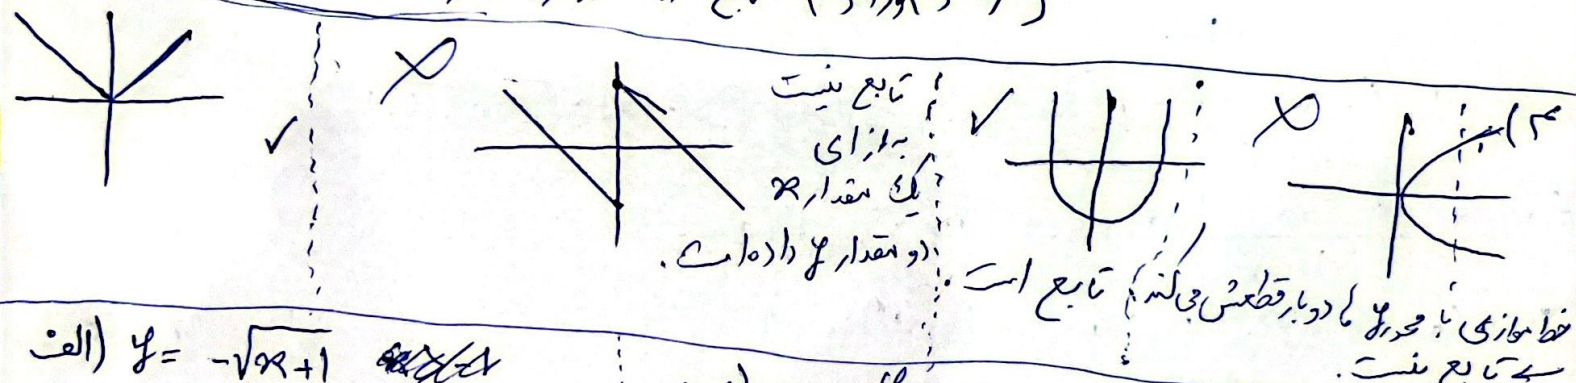 ۴)
خط موازی با محور y ها دوبار قطعش می‌کند
تابع نیست.
تابع است.
تابع نیست
به ازای
یک مقدار x
دو مقدار y داده است.
الف) y = -√x+1